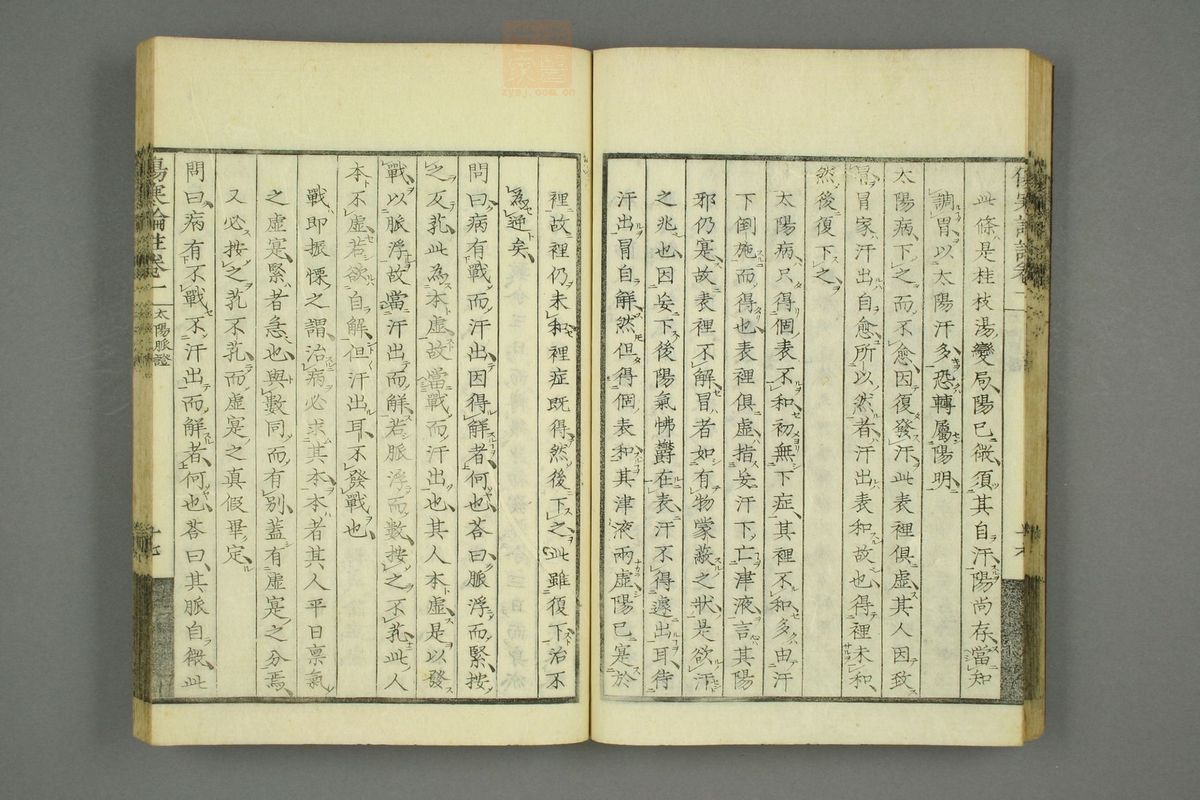 此條是桂枝湯變局陽已微須其自汗陽尚存當知
調胃以太陽汗多恐轉屬陽明
太陽病下之而不愈因復發汗此表裡俱虛其人因致
冒冒家汗出自愈所以然者汗出表和故也得裡未和
然後復下之
太陽病只得個表不和初無下症其裡不和多由汗
下倒施而得也表裡俱虛指妄汗下亡津液言其陽
邪仍寔故表裡不解冒者如有物蒙蔽之狀是欲汗
之兆也因妄下後陽氣怫欝在表汗不得遽出耳待
汗出冒自解然但得個表和其津液兩虛陽已寔於
太陽脈證
裡故裡仍未和裡症既得然後下之此雖復下治不
為逆矣
問曰病有戰而汗出因得解者何也荅曰脈浮而緊按
之反芤此為本虛故當戰而汗出也其人本虛是以發
戰以脈浮故當汗出而解若脈浮而數按之不芤此人
本不虛若欲自解但汗出耳不發戰也
戰即振慄之謂治病必求其本本者其人平日禀氣
之虛寔緊者急也與數同而有別盖有虛寔之分焉
又必按之芤不芤而虛寔之真假畢定
問曰病有不戰不汗出而解者何也荅曰其脈自微此
傷寒論註卷一
太陽脈證
十七
zysj.com.cn